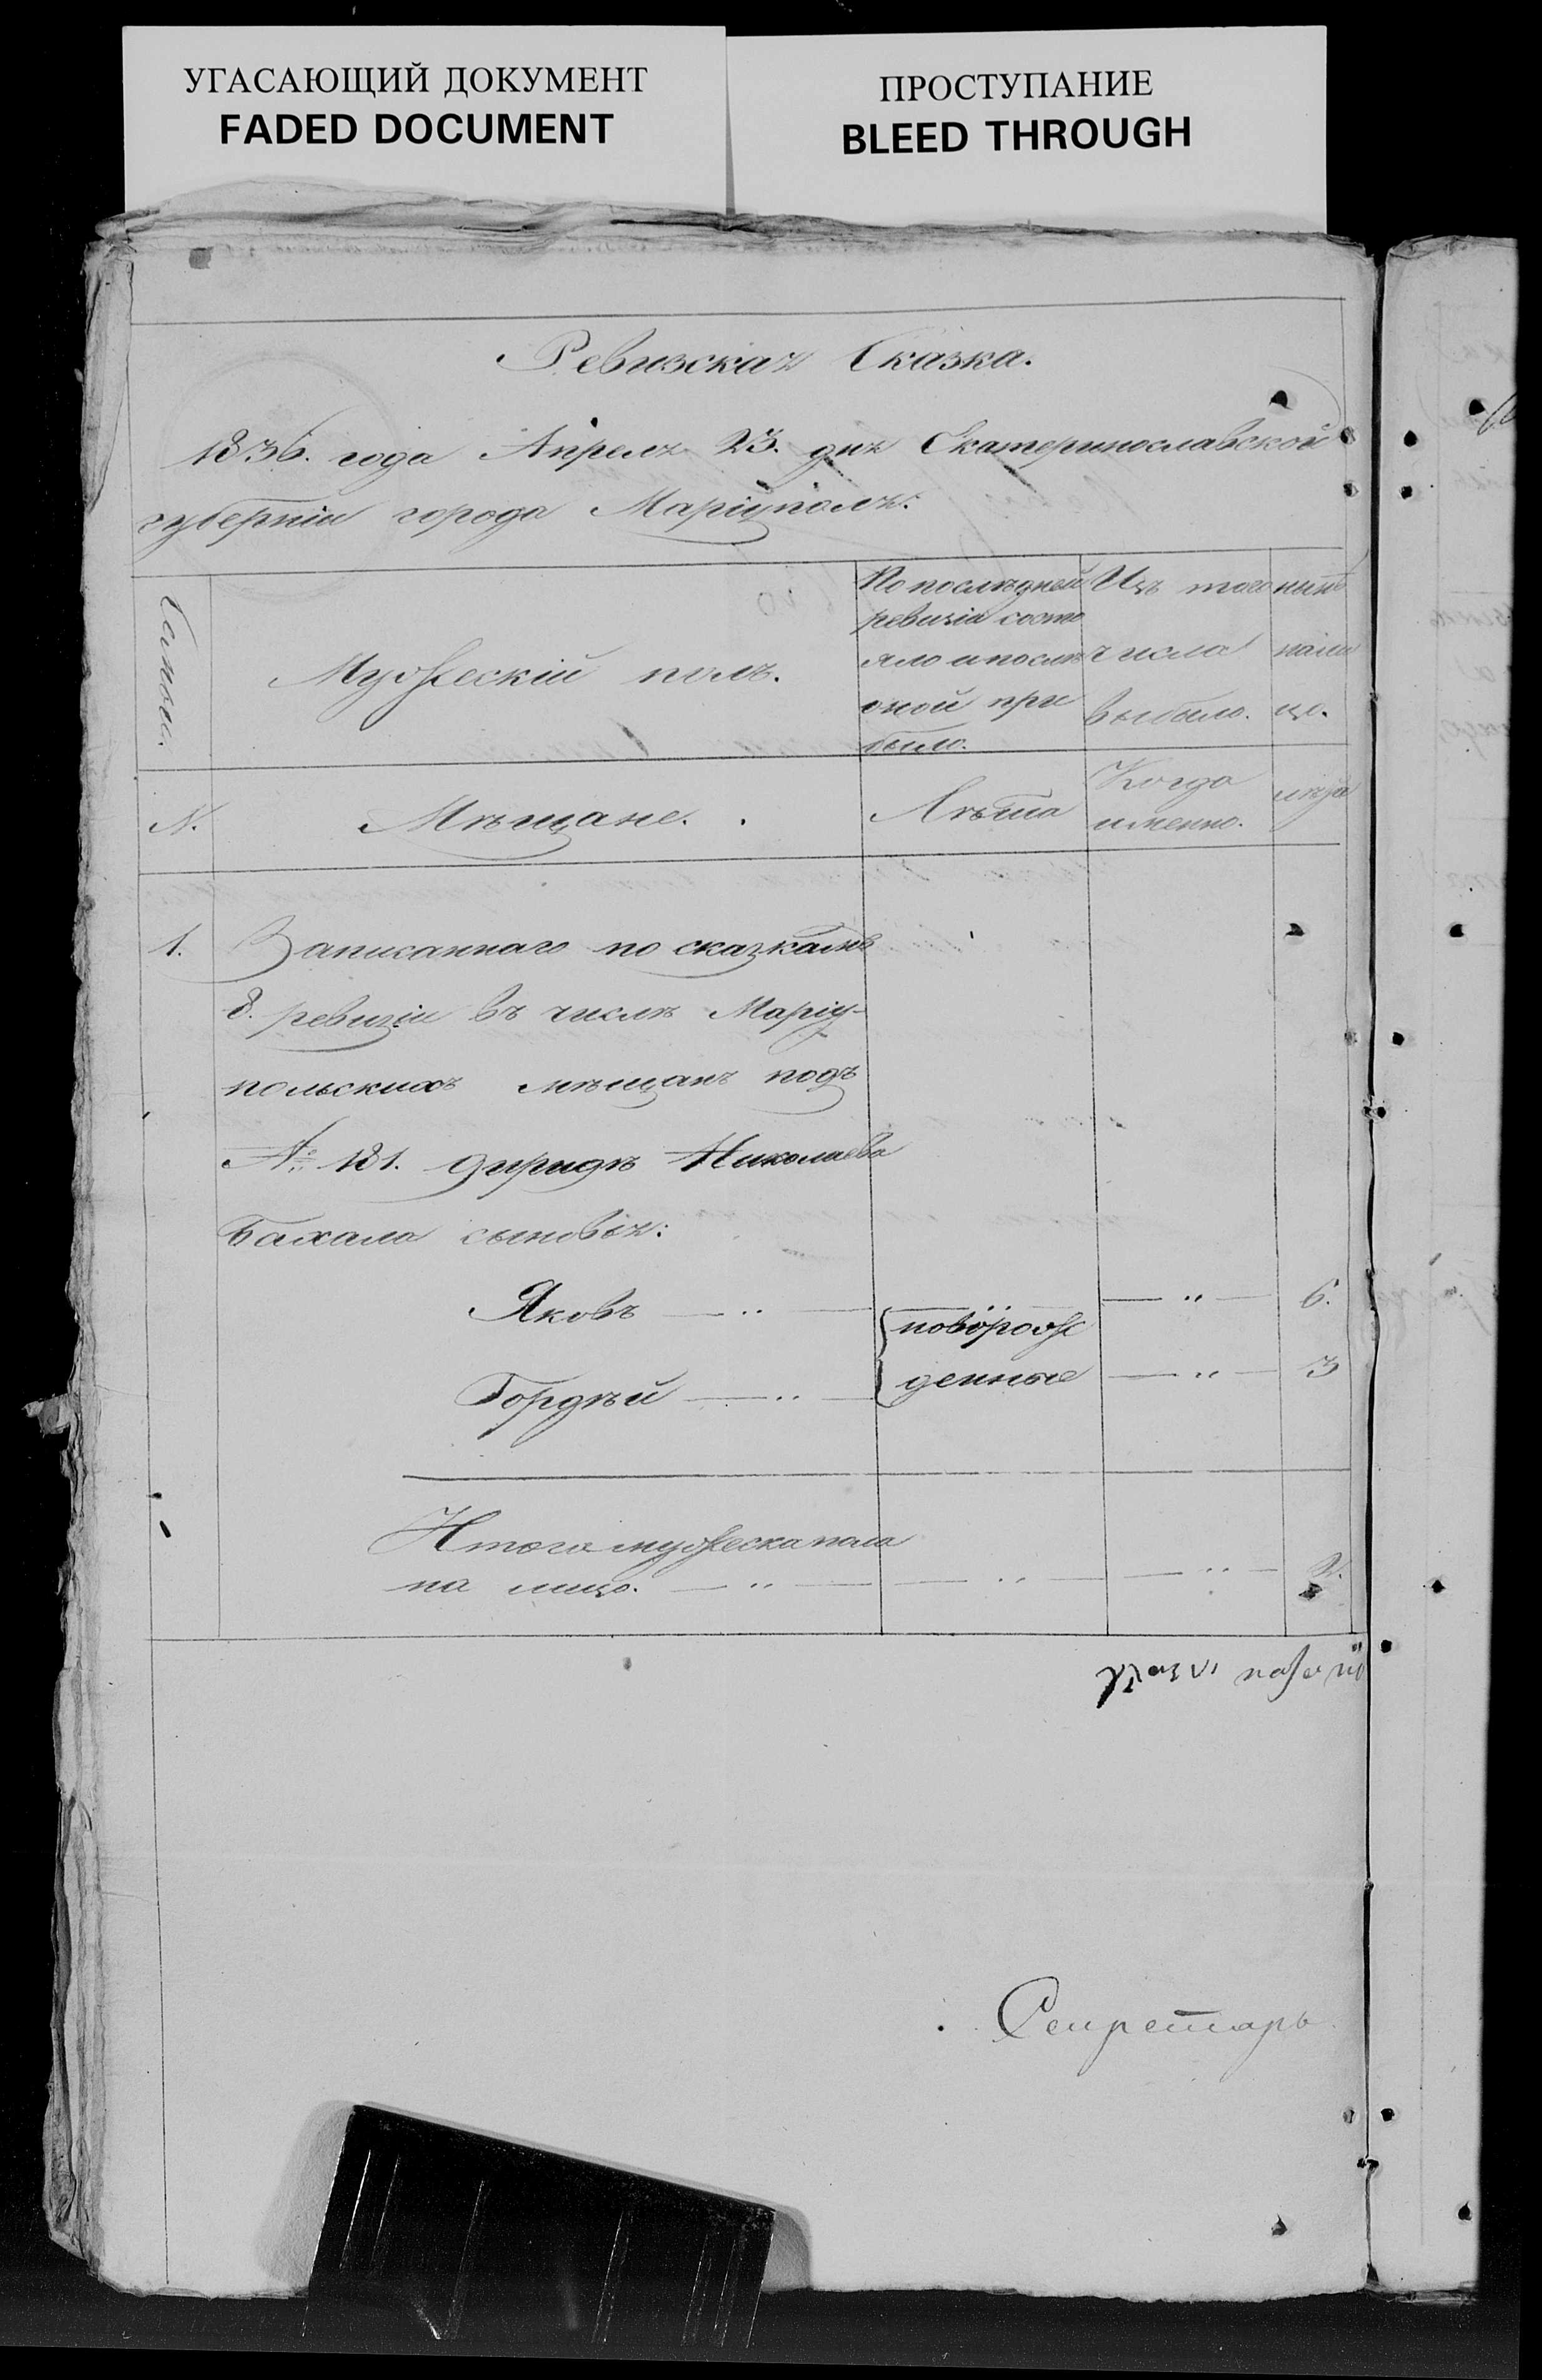 УГАСАЮЩИЙ ДОКУМЕНТ
FADED DOCUMENT
ПРОСТУПАНИЕ
BLEED THROUGH
Ревизская Сказка.
1836. года Апреля 23. дня Екатеринославской
губерніи города Маріуполя.
Семьи.
Мужескій полъ.
По последней
ревизіи состо
яло и после
оной при
было.
Изъ того
числа
выбыло.
ныне
на ли
це.
N.
Мѣщане.
Лѣта
Когда
именно.
лѣта
1. Записаннаго по сказкамъ
8. ревизіи въ числѣ Маріу-
польскихъ мѣщанъ подъ
№ 181. Николаева
Бахала сыновья:
Яковъ — " — новорож — " — 6.
Гордѣй — " — денные — " — 3
Итого мужеска пола
на лицо. — " — — " — — " — 2.
Секретарь